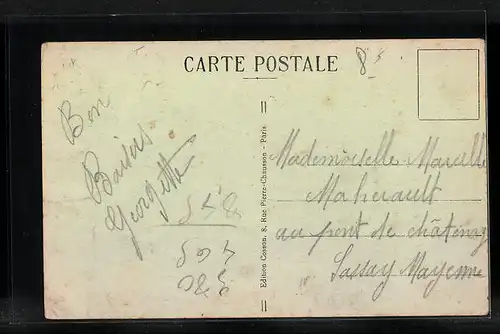 CARTE POSTALE
8
Bon
Baisers
Georgette
Edition Cosson, 8, Rue Pierre-Chausson - Paris
Mademoiselle Marcelle
Maherault
au pont de châtenay
Lassay Mayenne